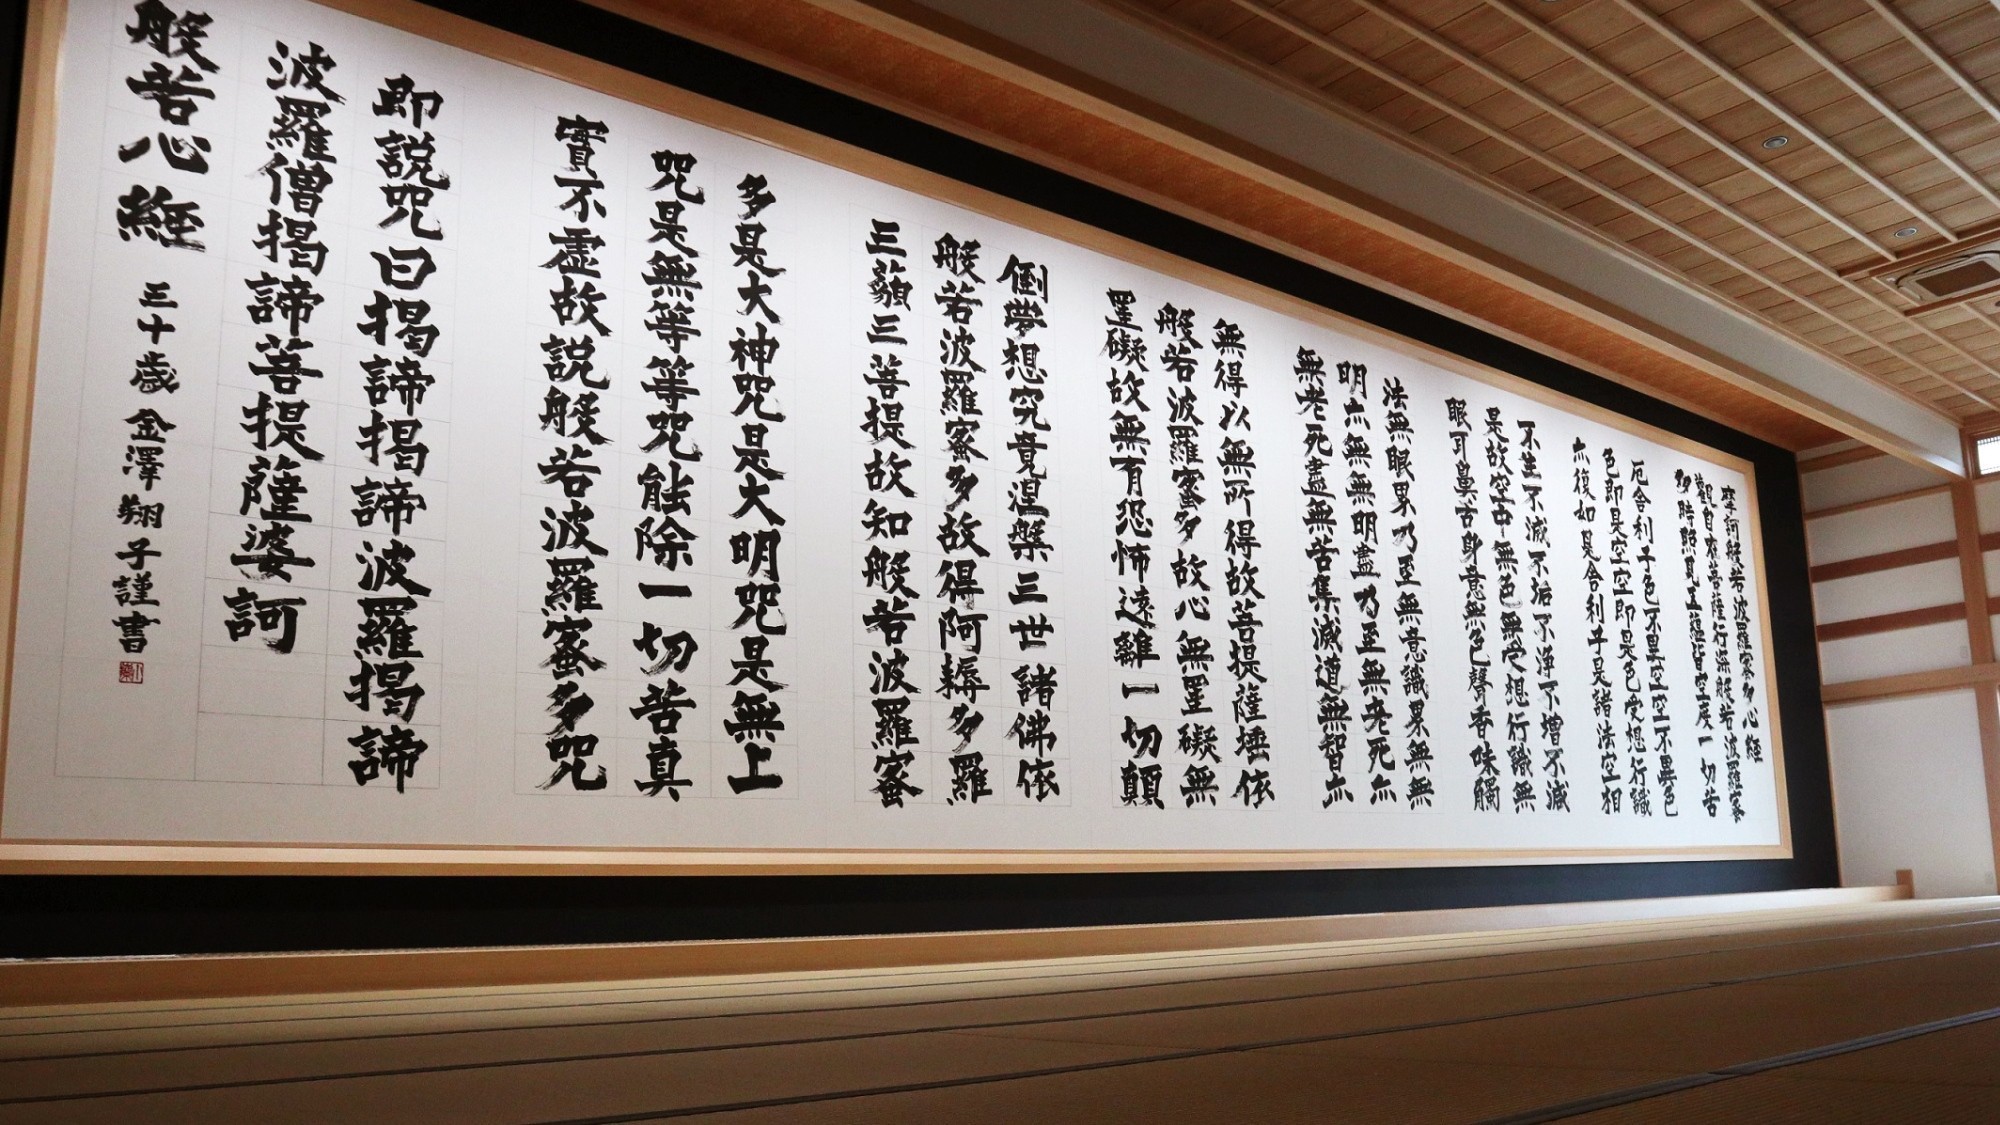 摩訶般若波羅蜜多心經
觀自在菩薩行深般若波羅蜜
多時照見五蘊皆空度一切苦
厄舎利子色不異空空不異色
色即是空空即是色受想行識
亦復如是舎利子是諸法空相
不生不滅不垢不淨不增不減
是故空中無色無受想行識無
眼耳鼻舌身意無色聲香味觸
法無眼界乃至無意識界無無
明亦無無明盡乃至無老死亦
無老死盡無苦集滅道無智亦
無得以無所得故菩提薩埵依
般若波羅蜜多故心無罣礙無
罣礙故無有恐怖遠離一切顛
倒夢想究竟涅槃三世諸佛依
般若波羅蜜多故得阿耨多羅
三藐三菩提故知般若波羅蜜
多是大神咒是大明咒是無上
咒是無等等咒能除一切苦真
實不虛故説般若波羅蜜多咒
即説咒曰揭諦揭諦波羅揭諦
波羅僧揭諦菩提薩婆訶
般若心經 三十歳 金澤翔子謹書